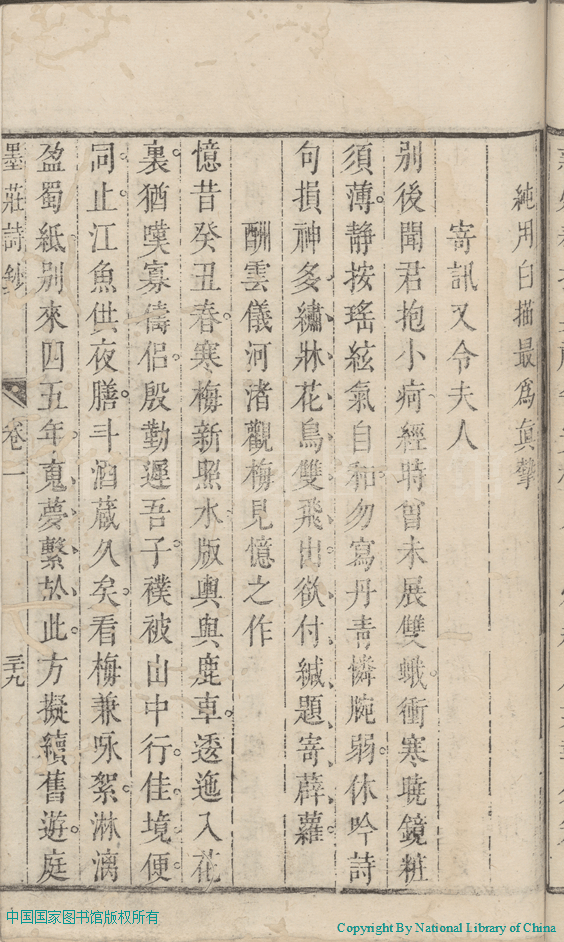 純用白描最爲眞摯
寄訊又令夫人
別後聞君抱小疴經時曾未展雙蛾衝寒曉鏡粧
須薄。静按瑤絃氣自和勿寫丹靑憐腕弱。休吟詩
句損神多繡牀花鳥雙飛出欲付緘題寄薜蘿。
酬雲儀河渚觀梅見憶之作
憶昔癸丑春。寒梅新照水版輿與鹿車。透迤入花
裏。猶嘆寡儔侶。殷勤遲吾子。襆被山中行。佳境便
同止。江魚供夜膳。斗酒蔵久矣。看梅兼咏絮。淋漓
盈蜀紙別來四五年蒐夢繫於此。方擬續舊遊。庭
墨莊詩鈔
卷一
三十九
中国国家图书馆版权所有
Copyright By National Library of China